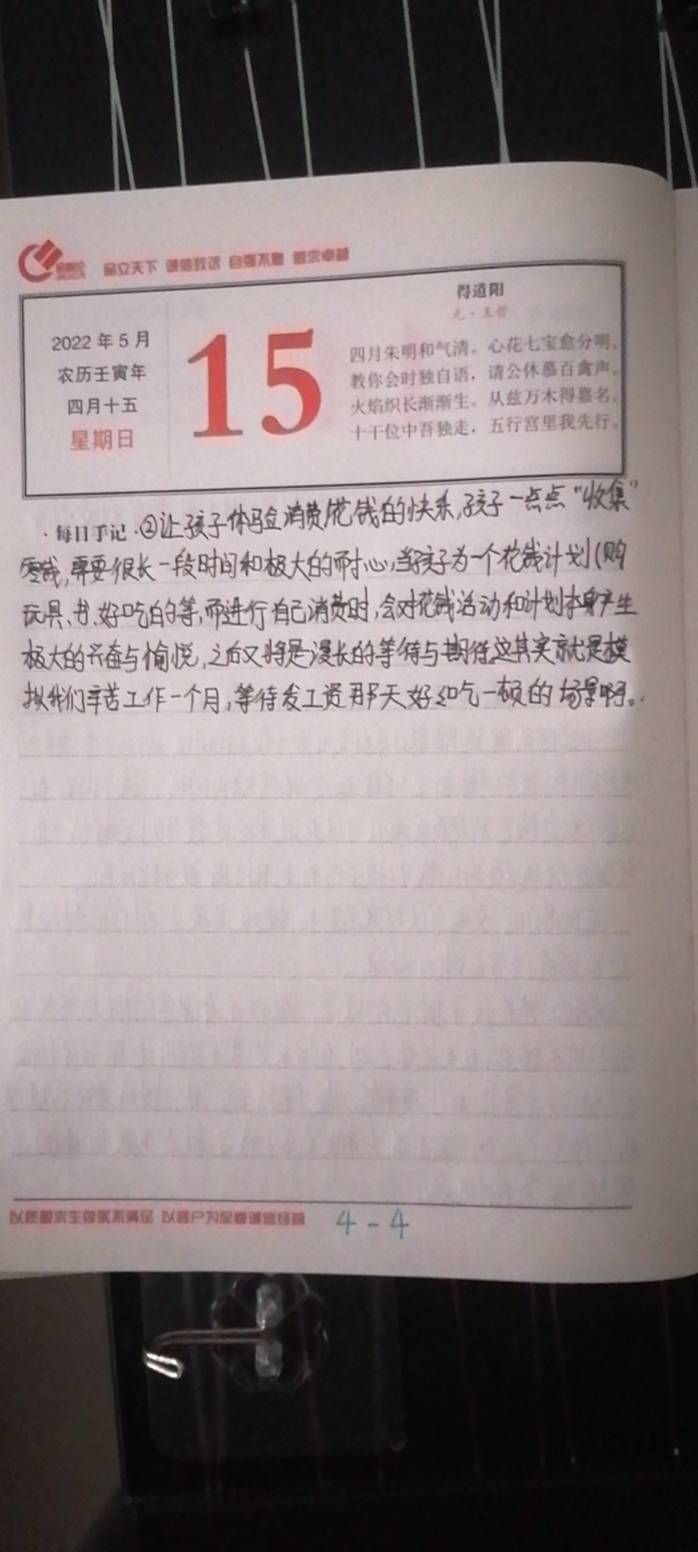 品立天下 诚信致远 自强不息 追求卓越
2022 年 5 月
农历壬寅年
四月十五
星期日
15
得道阳
元·王哲
四月朱明和气清。心花七宝愈分明。
教你会时独自语，请公休慕百禽声。
火焰织长渐渐生。从兹万木得嘉名。
十干位中吾独走，五行宫里我先行。
·每日手记·②让孩子体验消费/花钱的快乐,孩子一点点“收集”
零钱,需要很长一段时间和极大的耐心,当孩子为一个花钱计划(购
玩具、书、好吃的等,而进行自己消费时,会对花钱活动和计划本身产生
极大的兴奋与愉悦,之后又将是漫长的等待与期待这其实就是模
拟我们辛苦工作一个月,等待发工资那天好好吃一顿的场景啊。
以质量求生存永不满足 以客户为至尊诚信经营
4-4